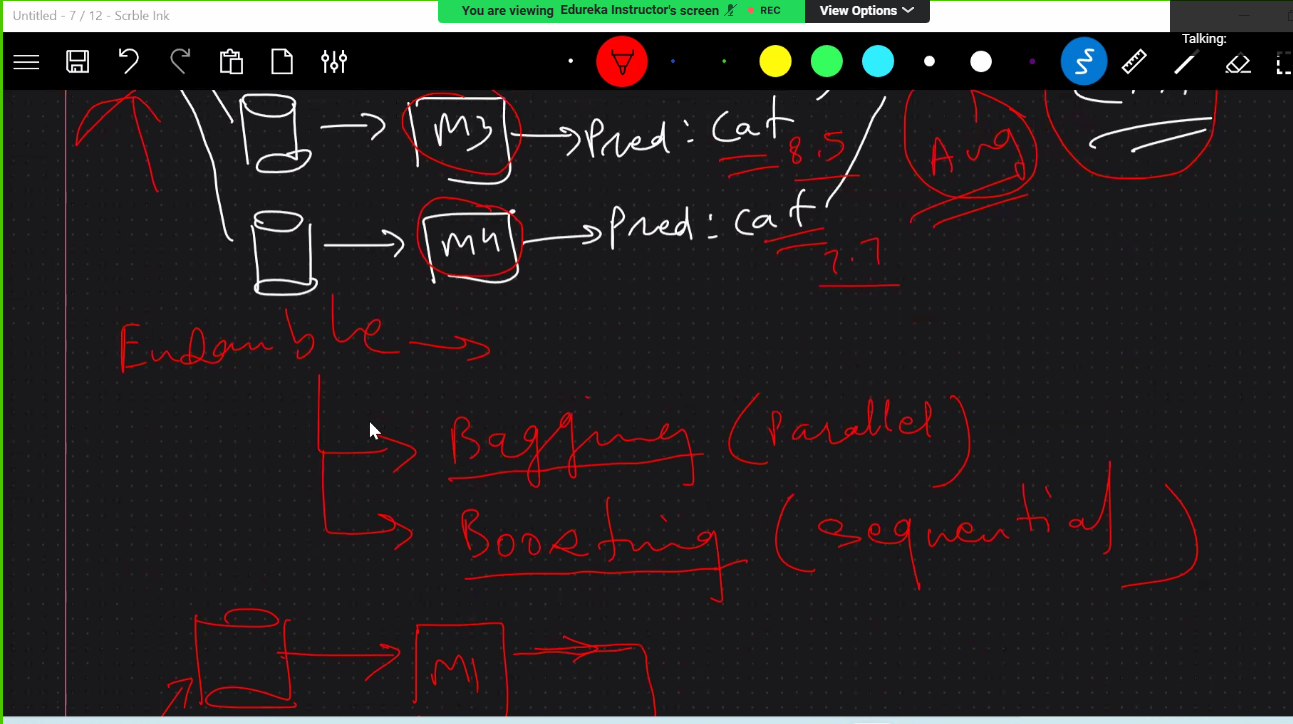 Untitled - 7 / 12 - Scrble Ink
You are viewing Edureka Instructor's screen REC View Options
Talking:
M3 Pred : Cat 8.5 Avg
M4 Pred : Cat 7.7
Ensamble
Bagging (Parallel)
Boosting (sequential)
M1